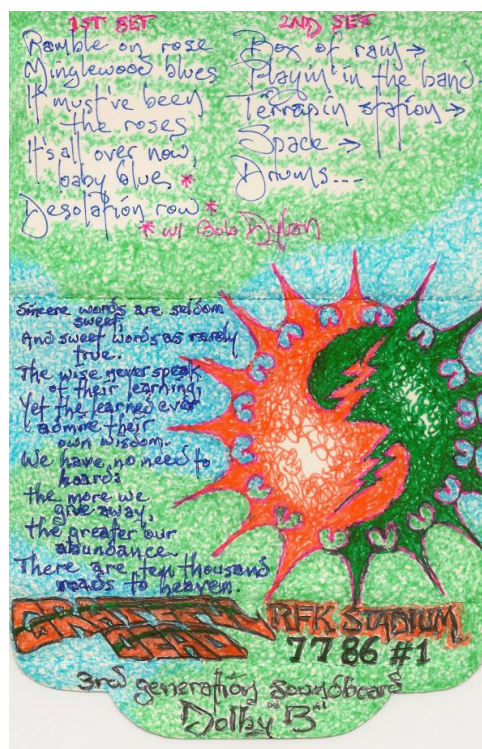 1ST SET
Ramble on rose
Minglewood blues
It must've been
the roses
It's all over now,
baby blue *
Desolation row *
* w/ Bob Dylan
2ND SET
Box of rain →
Playin' in the band
Terrapin station →
Space →
Drums...
Sincere words are seldom
sweet,
And sweet words as rarely
true.
The wise never speak
of their learning,
Yet the learned ever
admire their
own wisdom.
We have no need to
hoard:
the more we
give away,
the greater our
abundance.
There are ten thousand
roads to heaven.
GRATEFUL
DEAD
RFK STADIUM
7 7 86 #1
3rd generation soundboard
Dolby "B"